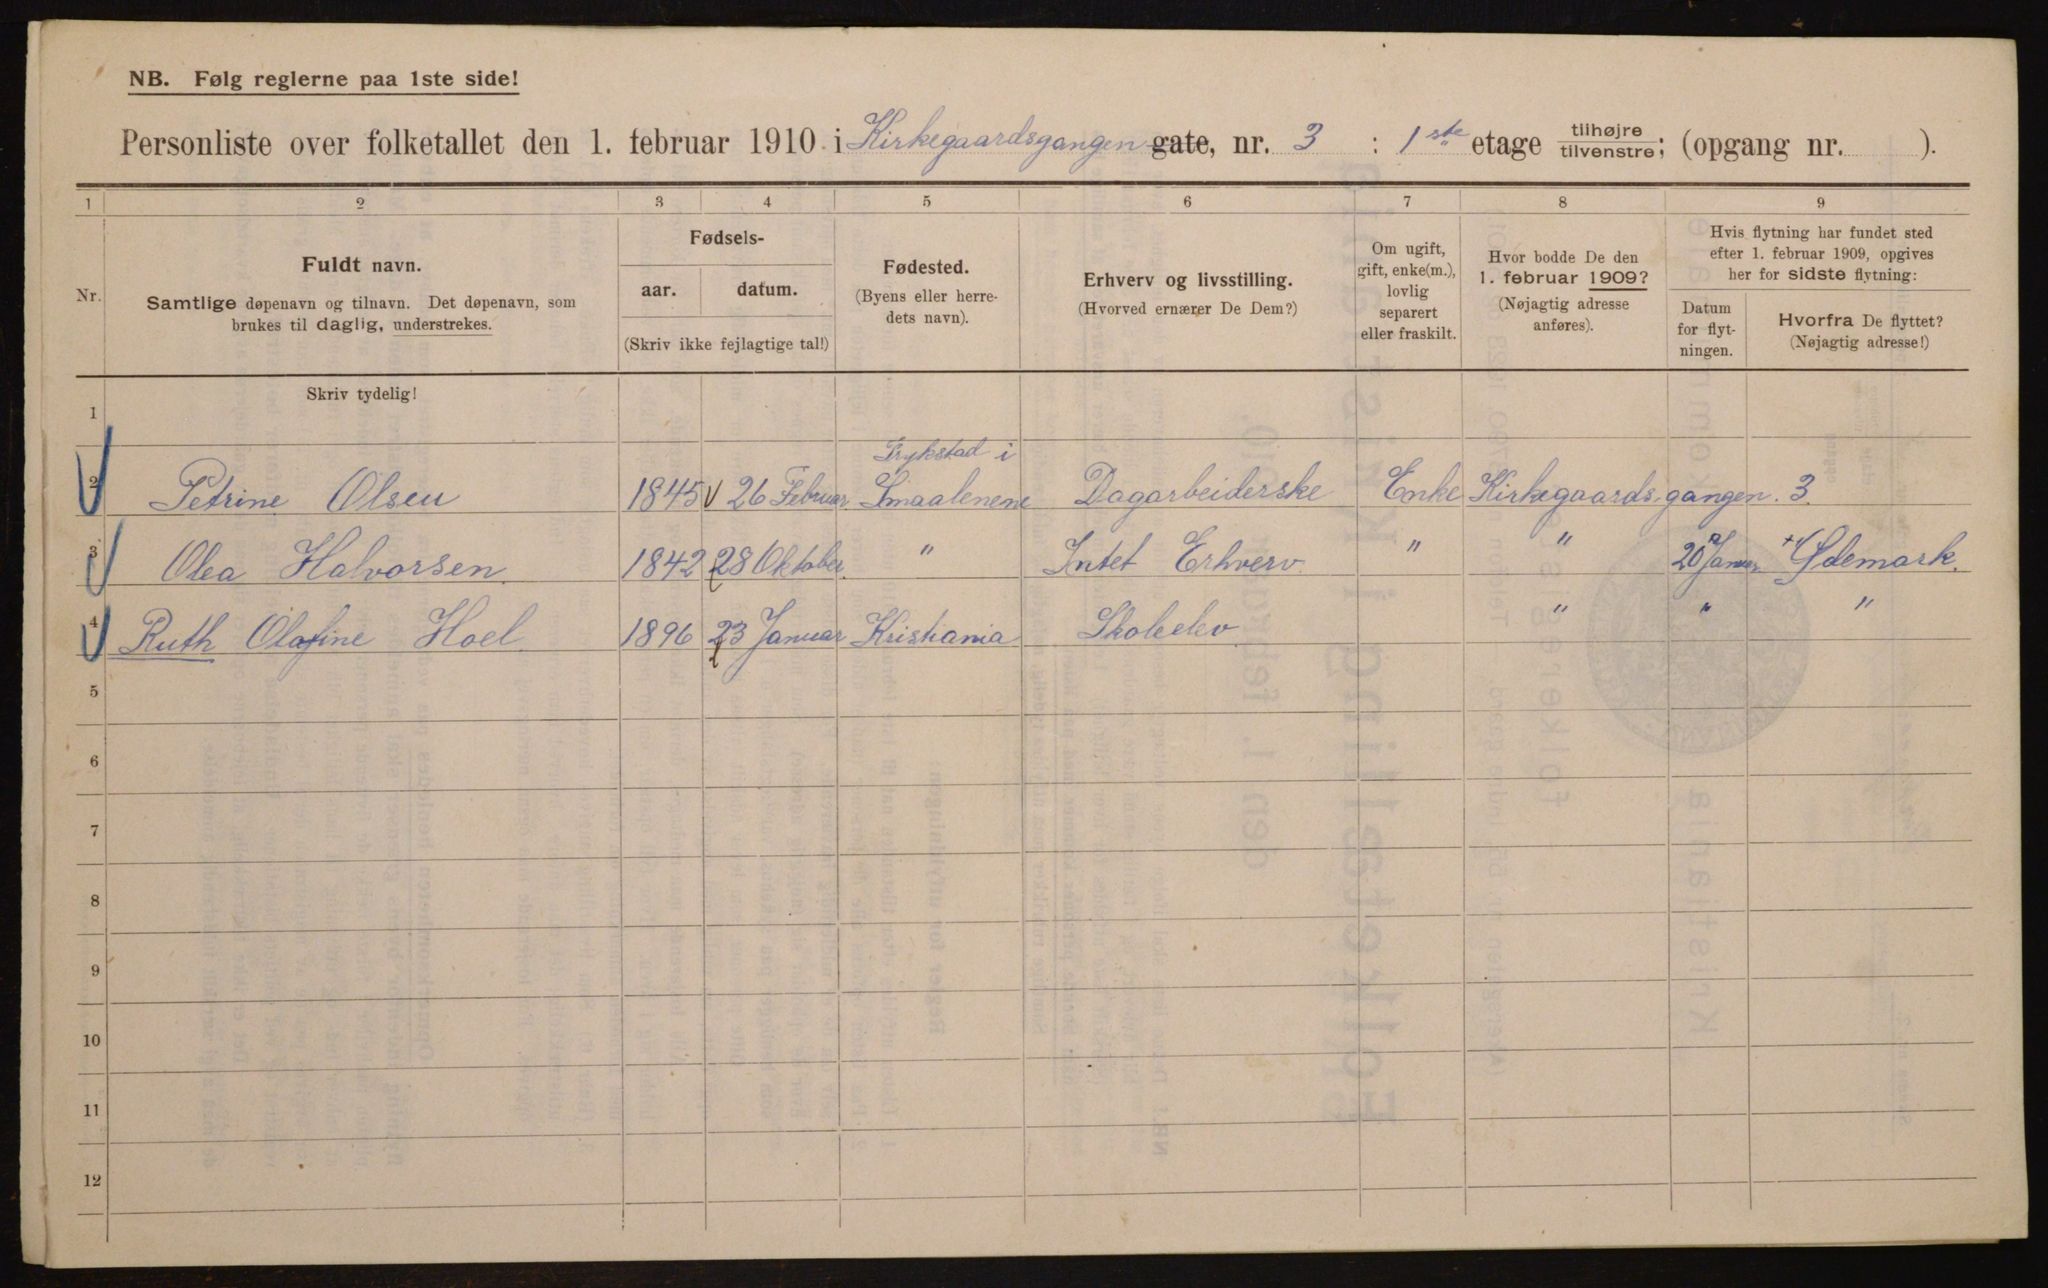 NB. Følg reglerne paa 1ste side!
Personliste over folketallet den 1. februar 1910 i Kirkegaardsgangen gate, nr. 3 : 1ste etage tilhøjre tilvenstre; (opgang nr. ).
1 2 3 4 5 6 7 8 9
Nr.
Fuldt navn.
Samtlige døpenavn og tilnavn. Det døpenavn, som
brukes til daglig, understrekes.
Fødsels-
aar. datum.
(Skriv ikke fejlagtige tal!)
Fødested.
(Byens eller herre-
dets navn).
Erhverv og livsstilling.
(Hvorved ernærer De Dem?)
Om ugift,
gift, enke(m.),
lovlig
separert
eller fraskilt.
Hvor bodde De den
1. februar 1909?
(Nøjagtig adresse
anføres).
Hvis flytning har fundet sted
efter 1. februar 1909, opgives
her for sidste flytning:
Datum
for flyt-
ningen.
Hvorfra De flyttet?
(Nøjagtig adresse!)
Skriv tydelig!
1
Trykstad i
2 Petrine Olsen 1845 26 Februar Smaalenene Dagarbeiderske Enke Kirkegaards gangen. 3.
3 Olea Halvorsen 1842 28 Oktober " Intet Erhverv " " 20 Januar Ødemark.
4 Ruth Olafine Hoel 1896 23 Januar Kristiania Skoleelev " " "
5
6
7
8
9
10
11
12